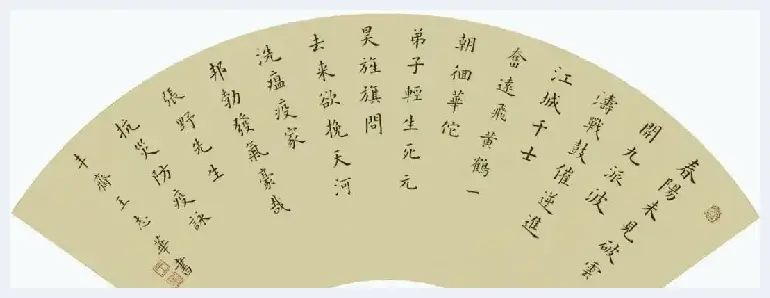 春陽未見破雲
開九派波
濤戰鼓催逆進
江城千士
奮遠飛黃鶴一
朝徊華佗
弟子輕生死元
昊旌旗問
去来欲挽天河
洗瘟疫家
邦勃發氣豪哉
張野先生
抗災防疫詠
齋王志華書